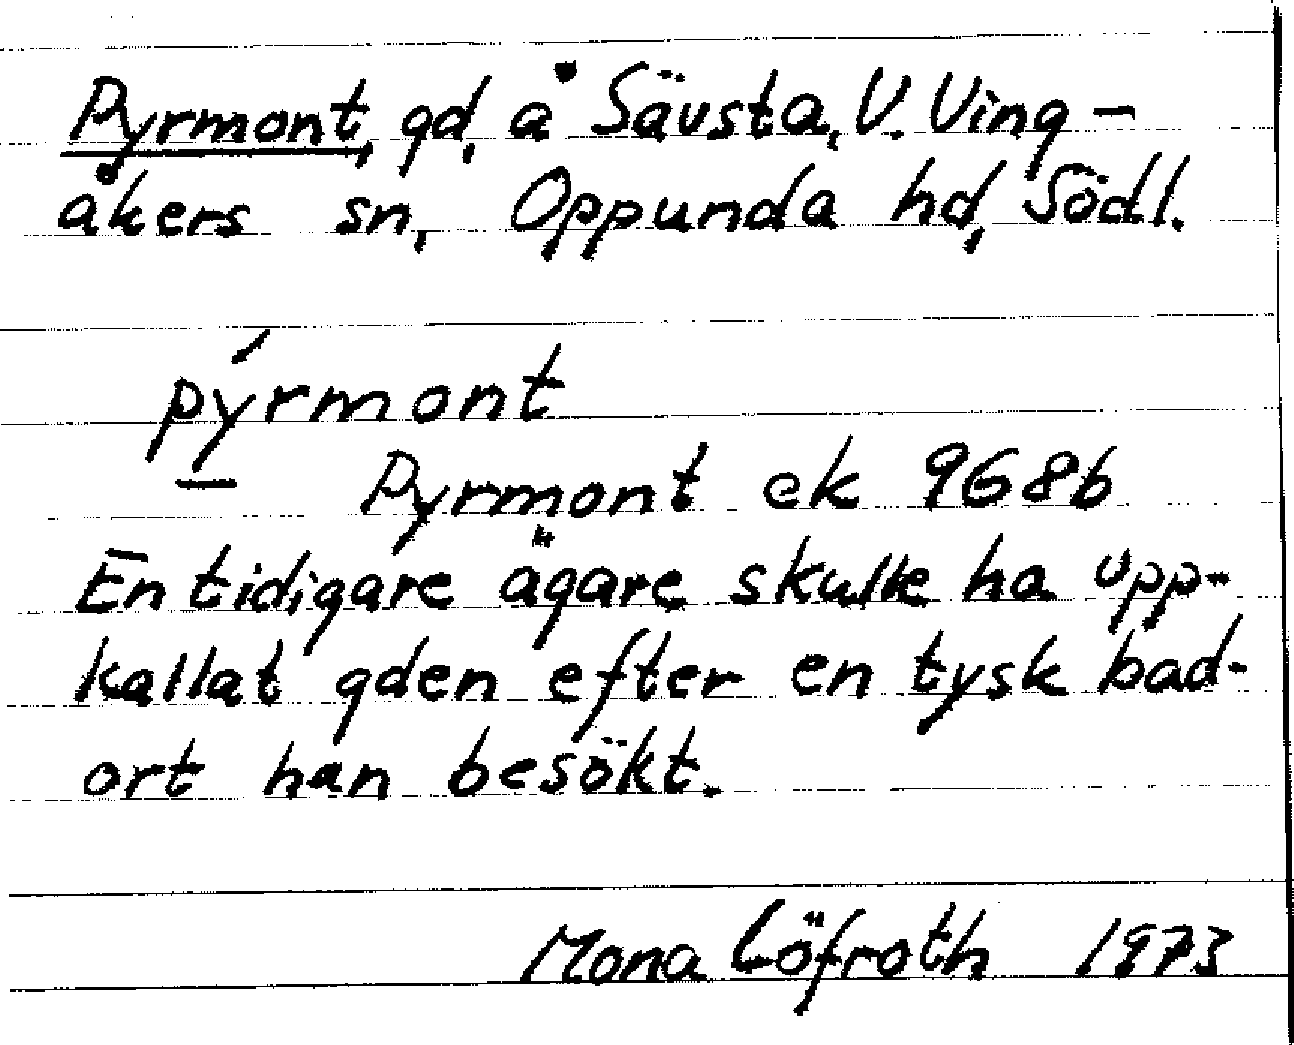 Pyrmont, gd, å Sävsta, V. Ving-
åkers sn, Oppunda hd, Södl.
pýrmont
Pyrmont ek 9G8b
En tidigare ägare skulle ha upp-
kallat gden efter en tysk bad-
ort han besökt.
Mona Löfroth 1973